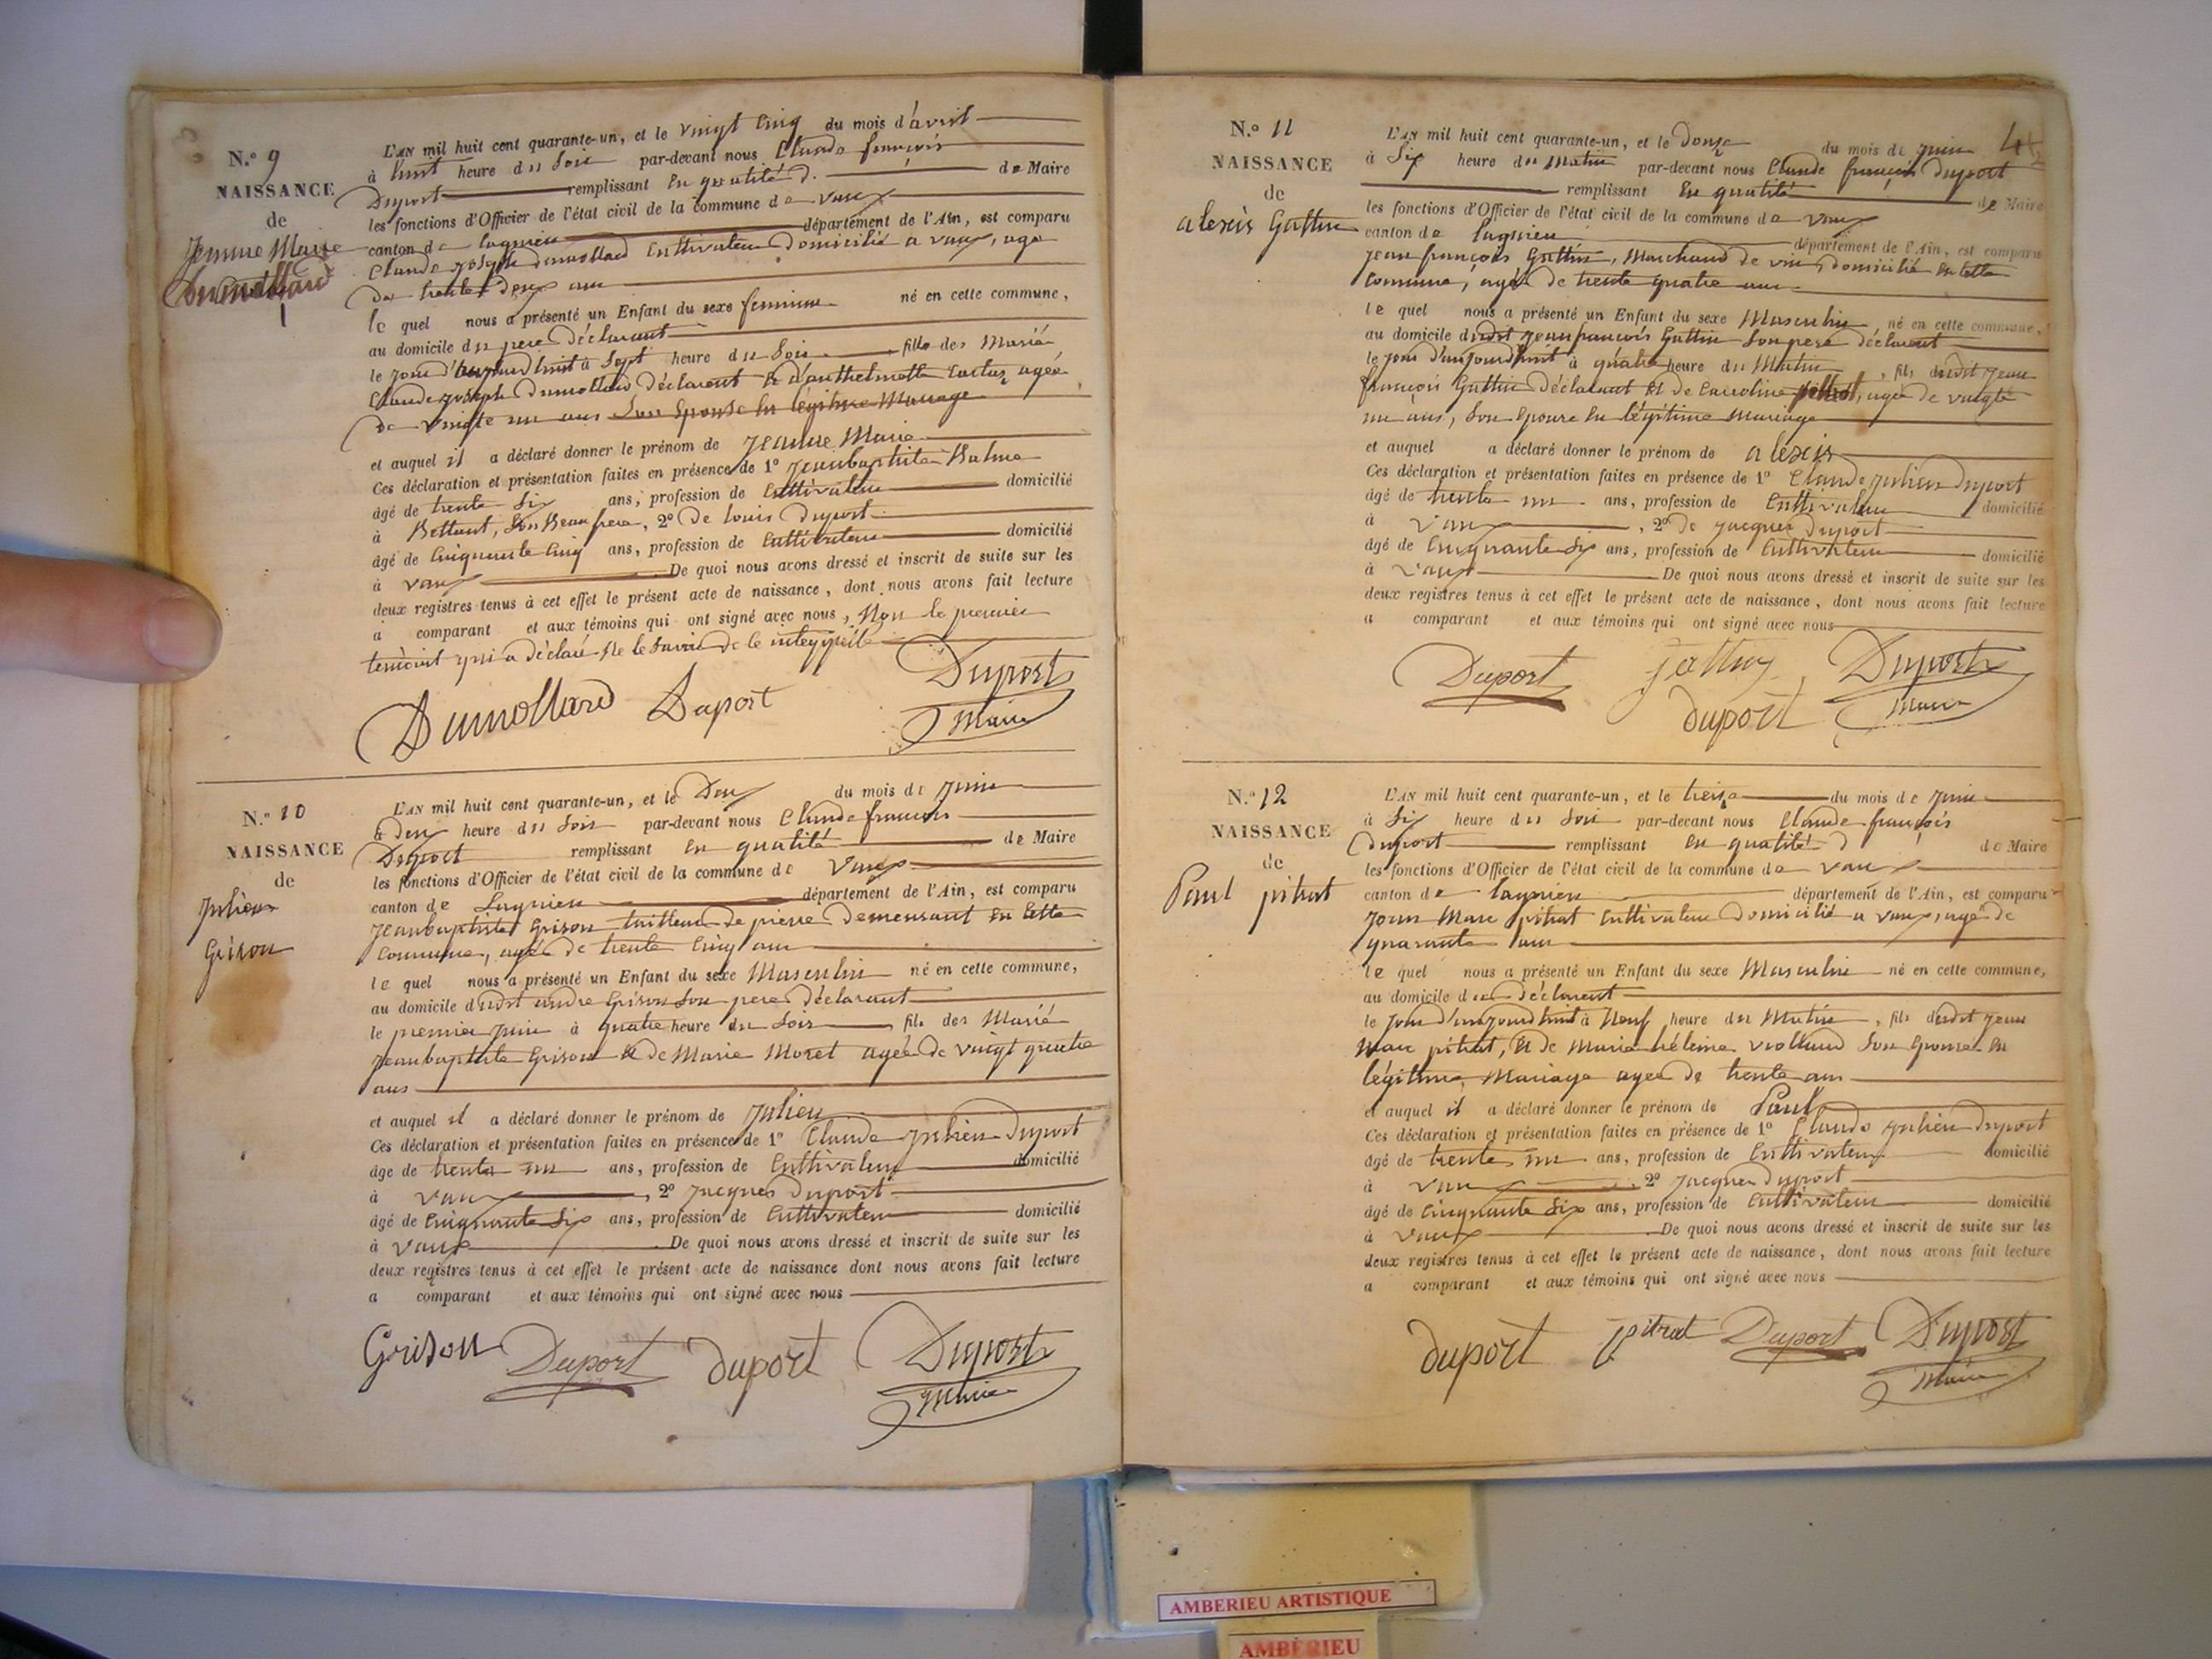 N.° 9
NAISSANCE
de
Jeanne Marie
Dumollard
L'AN mil huit cent quarante-un, et le vingt cinq du mois d'avril
à huit heure du soir par-devant nous Claude françois
Duport remplissant en qualité d. de Maire
les fonctions d'Officier de l'état civil de la commune de vaux
canton de lagnieu département de l'Ain, est comparu
Claude joseph dumollard Cultivateur domicilié a vaux, age
de trente deux ans
le quel nous a présenté un Enfant du sexe feminin né en cette commune,
au domicile du pere déclarant
le jour d'aujourd'huit à sept heure du soir fille des Marié
Claude joseph Dumollard déclarant et d'anthelmette agée
de vingte un ans son Epouse en légitime Mariage
et auquel il a déclaré donner le prénom de Jeanne Marie
Ces déclaration et présentation faites en présence de 1° jeanbaptiste Balme
âgé de trente six ans, profession de Cultivateur domicilié
à Bettant, son Beau frere, 2° De louis duport
âgé de Cinquante Cinq ans, profession de Cultivateur domicilié
à vaux De quoi nous avons dressé et inscrit de suite sur les
deux registres tenus à cet effet le présent acte de naissance, dont nous avons fait lecture
a comparant et aux témoins qui ont signé avec nous, Non le premier
temoint qui a déclaré ne le savoir de le
Dumollard Duport Duport
Maire
N.° 10
NAISSANCE
de
Julien
Grison
L'AN mil huit cent quarante-un, et le Deux du mois de juin
à deux heure du soir par-devant nous Claude françois
Duport remplissant en qualité de Maire
les fonctions d'Officier de l'état civil de la commune de Vaux
canton de Lagnieu département de l'Ain, est comparu
jeanbaptiste Grison tailleur de pierre demeurant en cette
Commune, agée de trente Cinq ans
le quel nous a présenté un Enfant du sexe Masculin né en cette commune,
au domicile dudit andre Grison son pere déclarant
le premier juin à quatre heure du soir fils des Marié
jeanbaptiste Grison et de Marie Moret agée de vingt quatre
ans
et auquel il a déclaré donner le prénom de Julien
Ces déclaration et présentation faites en présence de 1° Claude julien duport
âgé de trente un ans, profession de Cultivateur domicilié
à vaux, 2° jacques duport
âgé de Cinquante six ans, profession de Cultivateur domicilié
à vaux De quoi nous avons dressé et inscrit de suite sur les
deux registres tenus à cet effet le présent acte de naissance dont nous avons fait lecture
a comparant et aux témoins qui ont signé avec nous
Grison Duport duport Duport
Maire
4
N.° 11
NAISSANCE
de
alexis Guttin
L'AN mil huit cent quarante-un, et le douze du mois de juin
à six heure du Matin par-devant nous Claude françois duport
remplissant en qualité de Maire
les fonctions d'Officier de l'état civil de la commune de vaux
canton de lagnieu département de l'Ain, est comparu
jean françois Guttin, Marchand de vin, domicilié en cette
Commune, agée de trente quatre ans
le quel nous a présenté un Enfant du sexe Masculin, né en cette commune,
au domicile dudit jean françois Guttin son pere déclarant
le jour d'aujourd'huit à quatre heure du Matin, fils dudit jean
françois Guttin déclarant et de Carroline, agée de vingte
un ans, son Epouse en légitime Mariage
et auquel a déclaré donner le prénom de alexis
Ces déclaration et présentation faites en présence de 1° Claude julien duport
âgé de trente un ans, profession de Cultivateur domicilié
à vaux, 2° de jacques duport
âgé de Cinquante six ans, profession de Cultivateur domicilié
à vaux De quoi nous avons dressé et inscrit de suite sur les
deux registres tenus à cet effet le présent acte de naissance, dont nous avons fait lecture
a comparant et aux témoins qui ont signé avec nous
Duport Duport
duport Maire
N.° 12
NAISSANCE
de
Paul pitrat
L'AN mil huit cent quarante-un, et le treize du mois de juin
à six heure du soir par-devant nous Claude françois
duport remplissant en qualité d de Maire
les fonctions d'Officier de l'état civil de la commune de vaux
canton de lagnieu département de l'Ain, est comparu
jean Marc pitrat Cultivateur domicilié a vaux, agé de
quarante ans
le quel nous a présenté un Enfant du sexe Masculin né en cette commune,
au domicile du déclarent
le jour d'aujourd'huit à Neuf heure du Matin, fils dudit jean
Marc pitrat, et de Marie héleine violland son Epouse en
légitime Mariage agée de trente ans
et auquel il a déclaré donner le prénom de Paul
Ces déclaration et présentation faites en présence de 1° Claude julien duport
âgé de trente un ans, profession de Cultivateur domicilié
à vaux, 2° jacques duport
âgé de Cinquante six ans, profession de Cultivateur domicilié
à vaux De quoi nous avons dressé et inscrit de suite sur les
deux registres tenus à cet effet le présent acte de naissance, dont nous avons fait lecture
a comparant et aux témoins qui ont signé avec nous
duport pitrat Duport Duport
Maire
AMBERIEU ARTISTIQUE
AMBÉRIEU